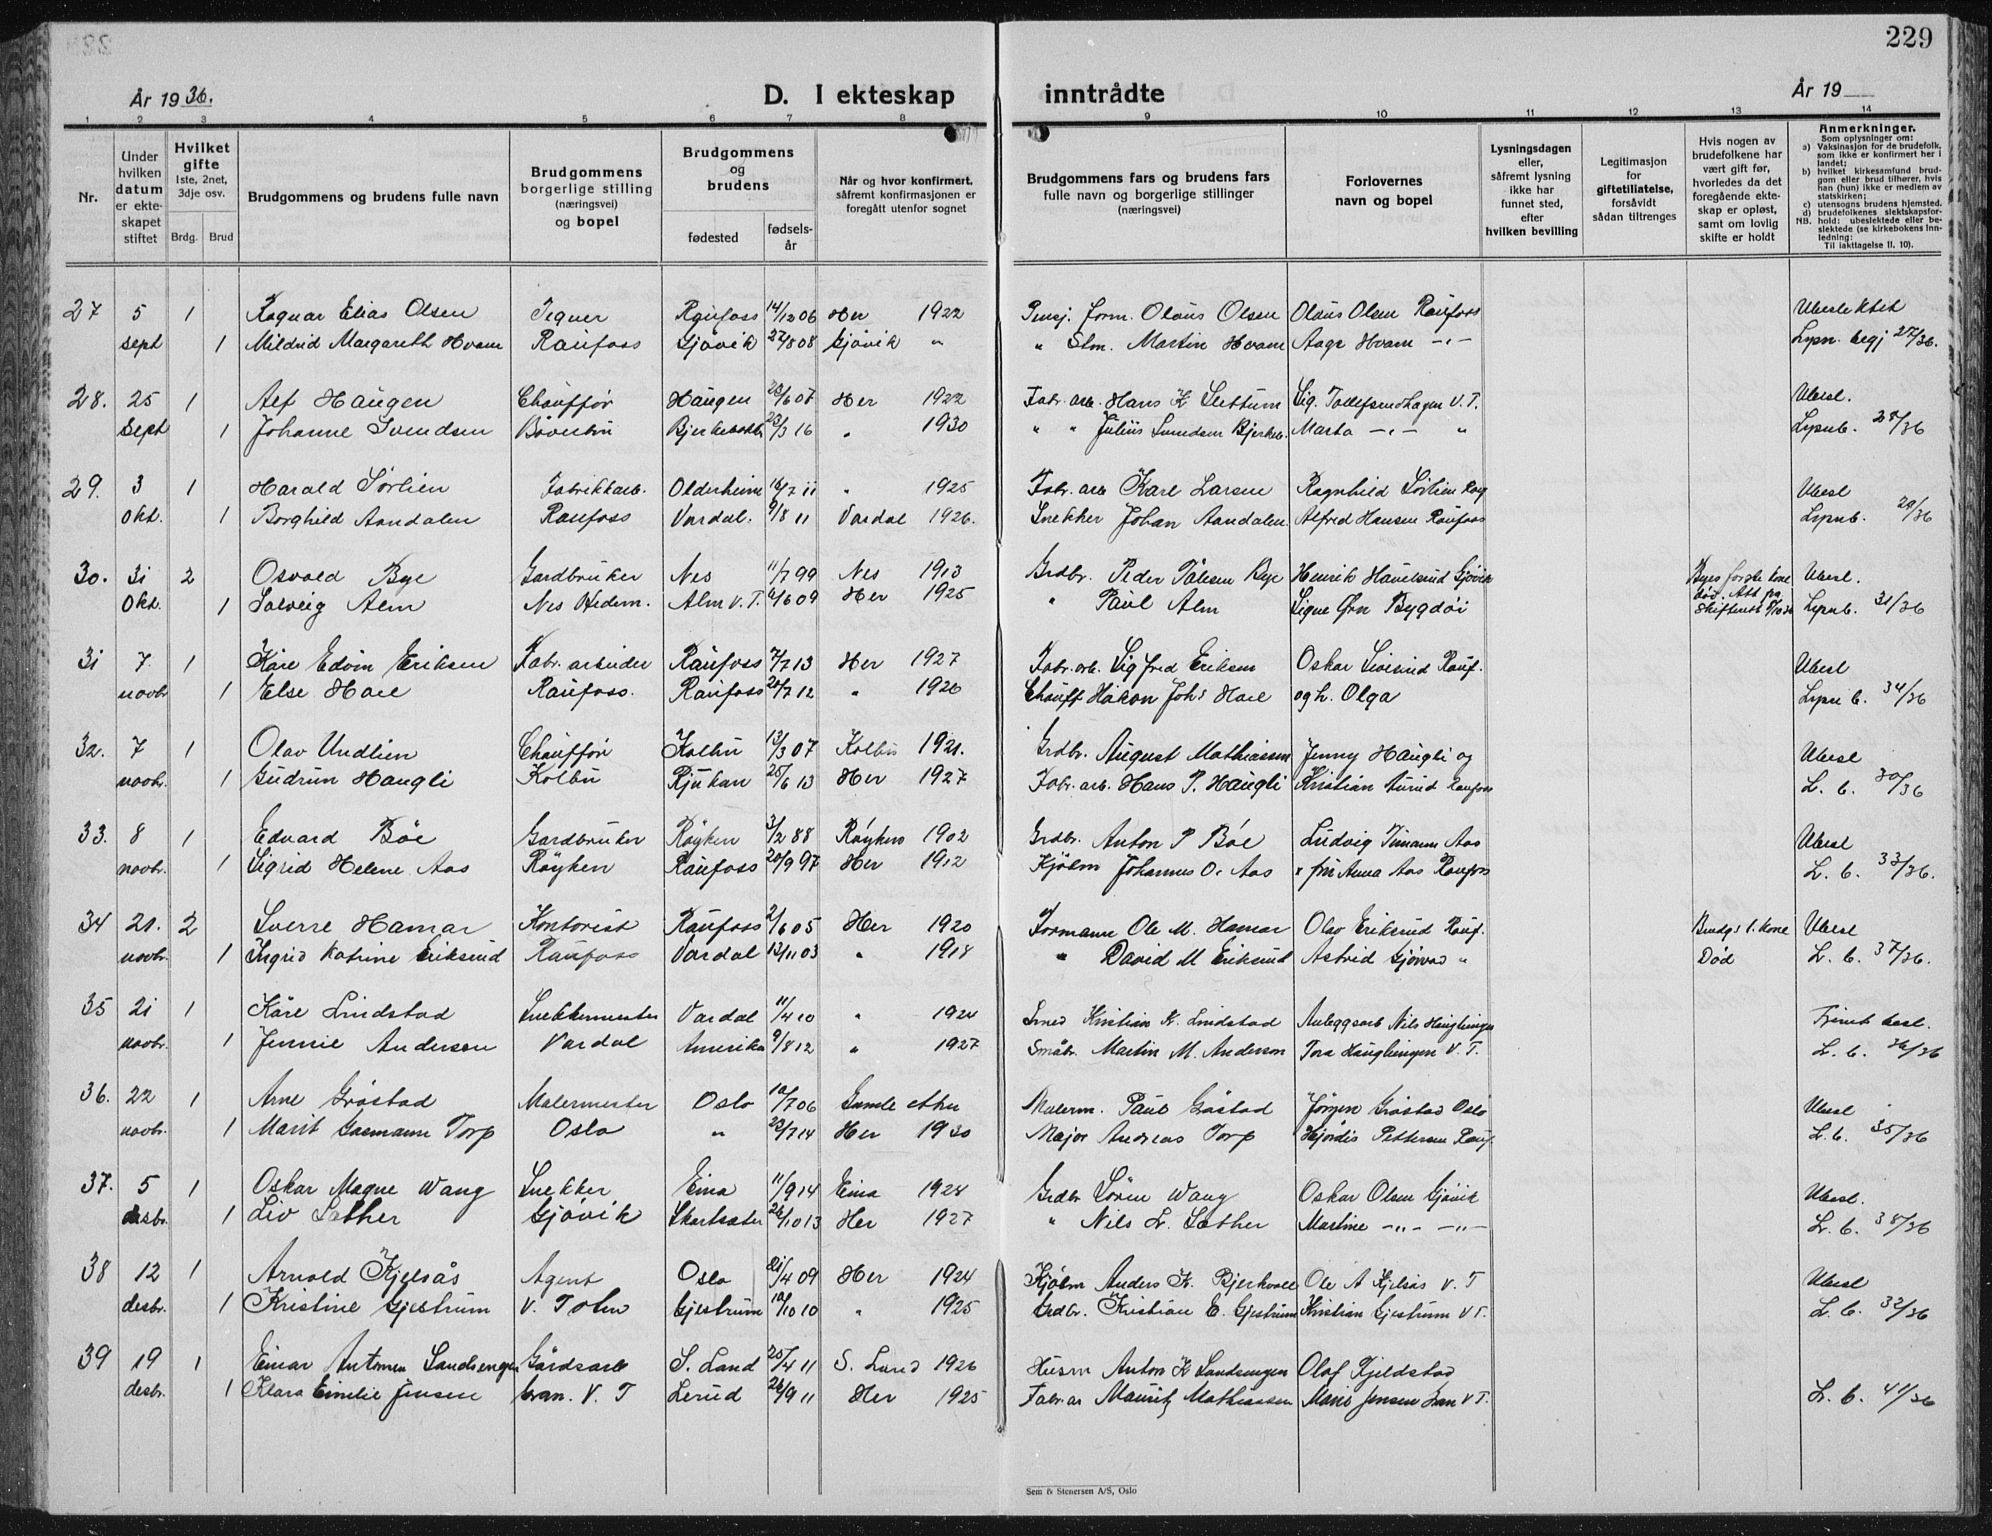 229
År 1936.
D. I ekteskap inntrådte
År 19
1 2 3 4 5 6 7 8 9 10 11 12 13 14
Nr.
Under hvilken datum er ekteskapet stiftet
Hvilket gifte 1ste, 2net, 3dje osv.
Brdg. Brud
Brudgommens og brudens fulle navn
Brudgommens borgerlige stilling (næringsvei) og bopel
Brudgommens og brudens
fødested
fødselsår
Når og hvor konfirmert, såfremt konfirmasjonen er foregått utenfor sognet
Brudgommens fars og brudens fars fulle navn og borgerlige stillinger (næringsvei)
Forlovernes navn og bopel
Lysningsdagen eller, såfremt lysning ikke har funnet sted, efter hvilken bevilling
Legitimasjon for giftetillatelse, forsåvidt sådan tiltrenges
Hvis nogen av brudefolkene har vært gift før, hvorledes da det foregående ekteskap er opløst, samt om lovlig skifte er holdt
Anmerkninger.
Som oplysninger om:
a) Vaksinasjon for de brudefolk, som ikke er konfirmert her i landet;
b) hvilket kirkesamfund brudgom eller brud tilhører, hvis han (hun) ikke er medlem av statskirken;
c) utensogns brudens hjemsted.
d) brudefolkenes slektskapsforhold: ubeslektede eller beslektede (se kirkebokens Innledning:
NB.
Til iakttagelse II. 10).
27 5 1 Ragnar Elias Olsen Tegner Raufoss 14/12 06 Her 1922 Pensj. form. Olaus Olsen Olaus Olsen Raufoss Ubeslektet
sept 1 Mildrid Margareth Hvam Raufoss Gjøvik 27/8 08 Gjøvik " " Slm. Martin Hvam Aage Hvam -"- Lysn. begj 27/36.
28. 25 1 Alf Haugen Chauffør Haugen 23/6 07 Her 1922 Fabr. arb. Hans K Slettum Sig. Tollefsrudhagen V.T. Ubesl.
Sept 1 Johanne Svendsen Bøverbru 23/3 16 " 1930 " " Julius Svendsen Bjerkeb. Marta -"- " Lysnb. 28/36
29. 3 1 Harald Sørlien Fabrikkarb. Olderheim 16/7 11 " 1925 Fabr. arb Karl Larsen Ragnhild Sørlien Rag Ubesl
Okt. 1 Borghild Aandalen Raufoss Vardal. 9/8 11 Vardal 1926. Snekker Johan Aandalen Alfred Hansen Raufoss Lysnb. 29/36
30. 31 2 Osvald Bye Gardbruker Nes 11/7 99 Nes 1913 Grdbr. Peder Pålesen Bye Henrik Havelsrud Gjøvik Byes første kone Ubesl.
Okt. 1 Solveig Alm Nes Hedem. Alm V.T. 6/6 09 Her 1925 " Paul Alm Signe Ørn Bygdøi død. Att fra Skifterett Lysnb. 31/36
31 7 1 Kåre Edvin Eriksen Fabr. arbeider Raufoss 7/7 13 Her 1927 Fabr. arb. Sigfred Eriksen Oskar Sivesind Rauf. Ubesl
novbr 1 Else Hoel Raufoss. Raufoss 20/7 12 " 1926 Chauff Håkon Joh's Hoel og h. Olga Lysn b. 34/36
32. 7 1 Olav Undlien Chauffør Kolbu 13/3 07 Kolbu 1921. Grdbr. August Mathiassen Jenny Haugli og Ubesl
novbr. 1 Gudrun Haugli Kolbu Rjukan 25/6 13 Her 1927 Fabr. arb. Hans P. Haugli Kristian Raufoss L. b. 30/36
33. 8 1 Edvard Bøe Gardbruker Røyken 3/2 88 Røyken 1902 Grdbr. Anton P Bøe Ludvig Aas Ubesl
novbr. 1 Sigrid Helene Aas Røyken Raufoss 20/9 97 Her 1912 Kjølm Johannes O. Aas " fru Anna Aas Raufoss L. b. 33/36.
34 21. 2 Sverre Hamar Kontorist Raufoss 2/6 05 Her 1920 Formann Ole M. Hamar Olav Eriksrud Rauf. Brudgs 1. kone Ubesl
novbr. 1 Ingrid Katrine Eriksrud Raufoss Vardal 13/11 03 " 1918 " David M Eriksrud Astrid Gjøvad " Død L. b. 37/36.
35 21 1 Kåre Lindstad Snekkermester Vardal 11/4 10 " 1924 Smed Kristian K. Lindstad Anleggsarb Nils Hauglingen besl.
novbr. 1 Jennie Anderson Vardal Amerika 9/8 12 " 1927 Småbr. Martin M. Anderson Tora Hauglingen V. T. L. b. 36/36
36. 22 1 Arne Gråstad Malermester Oslo 10/7 06 Gamle 1930 Malerm. Paul Gråstad Jørgen Gråstad Oslo Ubesl
novbr. 1 Marit Gasmann Torp Oslo " 23/7 14 Her 1930 Major Andreas Torp Hjørdis Pettersen Rauf. L. b. 35/36
37. 5 1 Oskar Magne Wang Snekker Eina 11/9 14 Eina 1924 Grdbr Søren Wang Oskar Olsen Gjøvik Ubesl.
desbr. 1 Liv Sæther Gjøvik Skartsæter 26/10 13 Her 1927 " Nils L. Sæther Martine -"- -"- L. b. 38/36
38 12 1 Arnold Kjelsås Agent Oslo 21/4 09 Her 1924 Kjølm Anders K. Bjerkvoll Ole A Kjelsås V. T Ubesl
desbr. 1 Kristine Gjestrum V. Toten Gjestrum 10/10 10 " 1925 Grdbr. Kristian E. Gjestrum Kristian Gjestrum V T. L. b. 32/36
39 19 1 Einar Antonsen Sandsengen Gårdsarb S. Land 25/4 11 S. Land 1926 Husm Anton K Sandsengen Olaf Kjeldstad
desbr. 1 Klara Emelie Jensen V. T Lerud 26/9 11 Her 1925 Fabr. ar Mauritz Mathiassen Jensen V T. L. b. 41/36
Sem & Stenersen A/S, Oslo